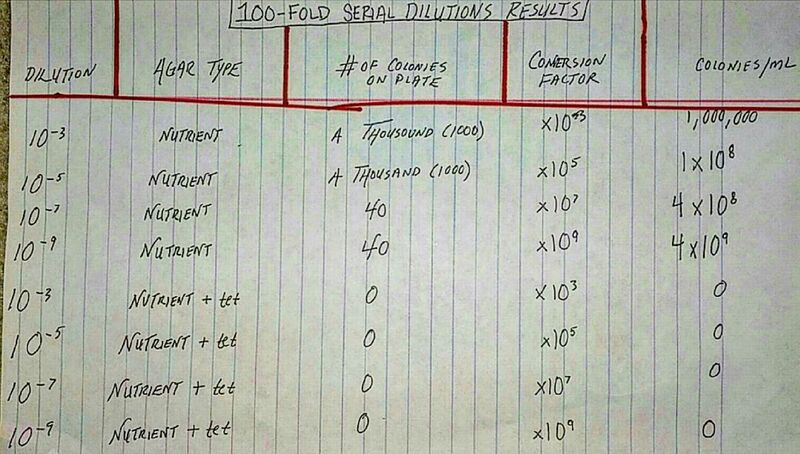 100-FOLD SERIAL DILUTIONS RESULTS
DILUTION AGAR TYPE # OF COLONIES ON PLATE CONVERSION FACTOR COLONIES/mL
10⁻³ NUTRIENT A THOUSOUND (1000) ×10³ 1,000,000
10⁻⁵ NUTRIENT A THOUSAND (1000) ×10⁵ 1×10⁸
10⁻⁷ NUTRIENT 40 ×10⁷ 4×10⁸
10⁻⁹ NUTRIENT 40 ×10⁹ 4×10⁹
10⁻³ NUTRIENT + tet 0 ×10³ 0
10⁻⁵ NUTRIENT + tet 0 ×10⁵ 0
10⁻⁷ NUTRIENT + tet 0 ×10⁷ 0
10⁻⁹ NUTRIENT + tet 0 ×10⁹ 0